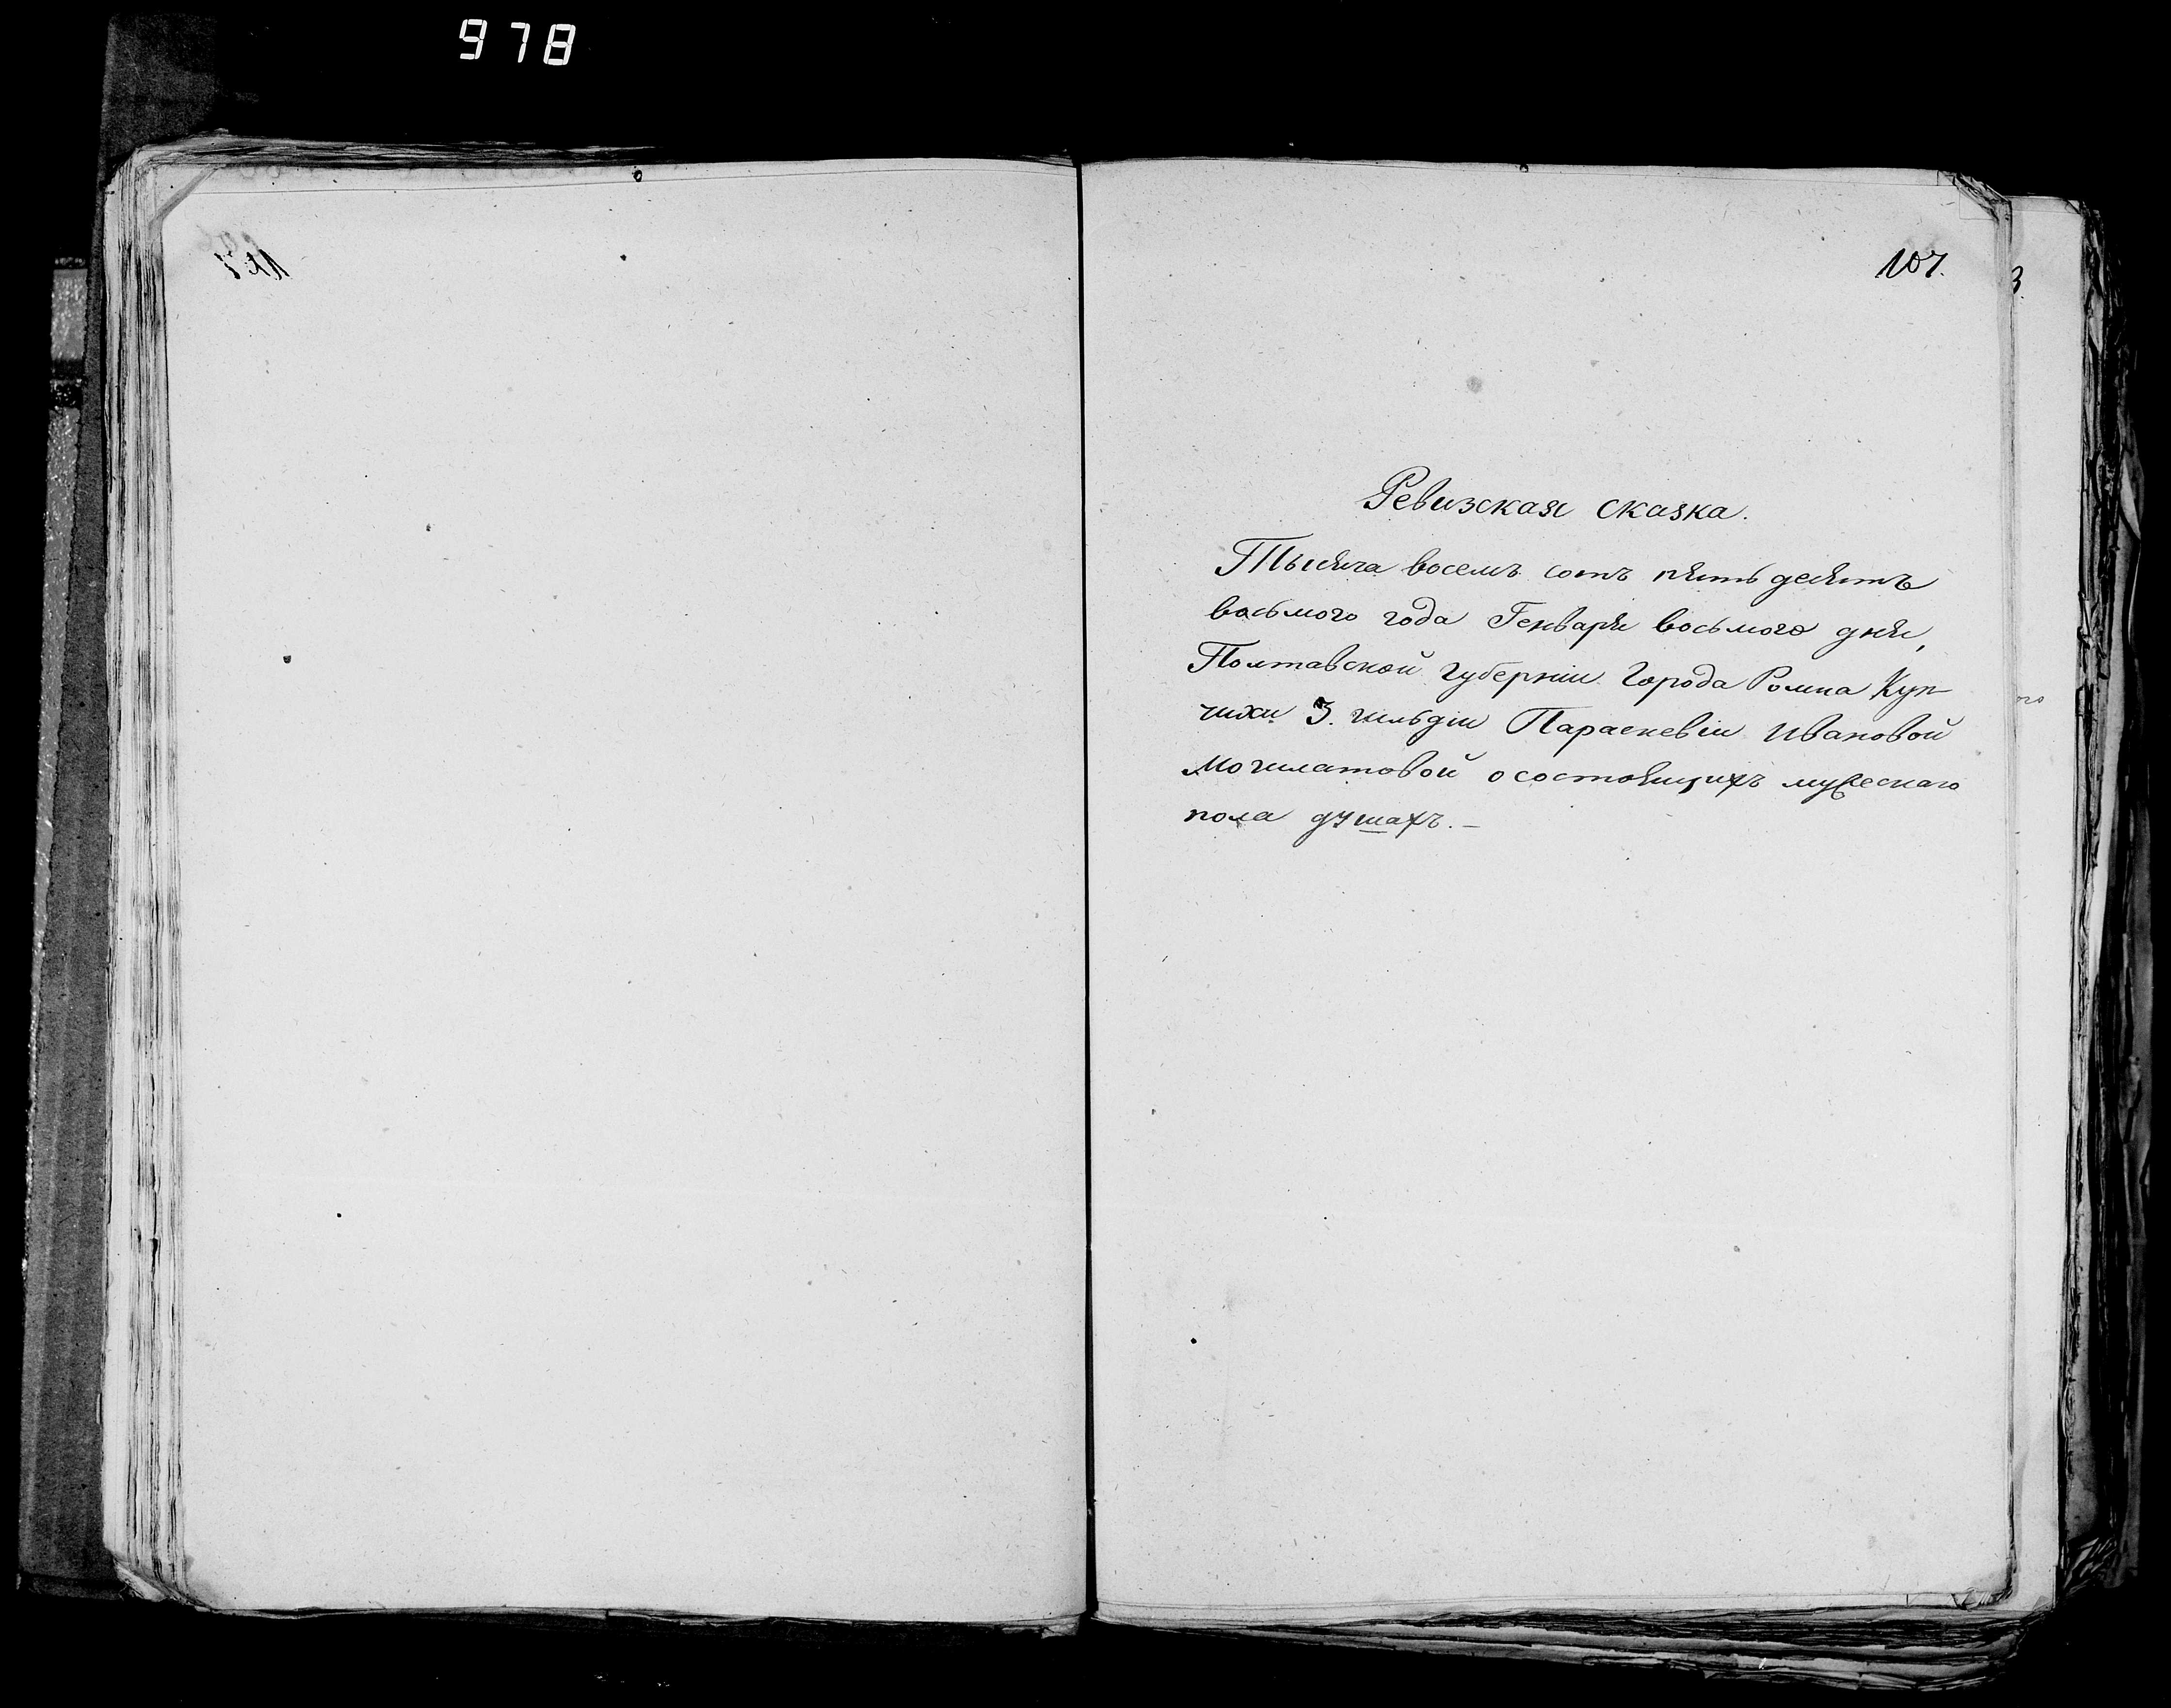 978
107.
Ревизская сказка.
Тысяча восемь сотъ пять десятъ
восьмого года Генваря восьмого дня,
Полтавской губерніи Города Ромна Куп-
чихи 3. гильдіи Параскевіи Ивановой
о состоящихъ мужескаго
пола душахъ. –